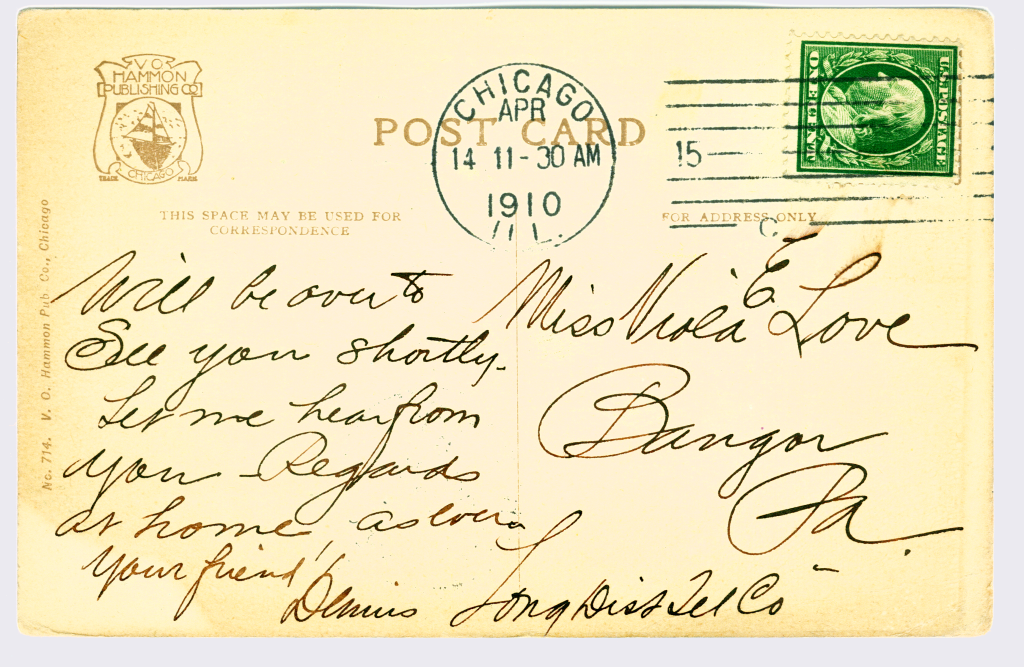 V. O.
HAMMON
PUBLISHING CO
CHICAGO
TRADE MARK
POST CARD
CHICAGO
APR
14 11-30 AM
1910
ILL.
15
C
U.S. POSTAGE
ONE CENT
THIS SPACE MAY BE USED FOR
CORRESPONDENCE
FOR ADDRESS ONLY
No. 714. V. O. Hammon Pub. Co., Chicago
Will be over to
See you shortly.
Let me hear from
you - Regards
at home, as ever
Your friend
Dennis
Long Dist Tel Co
Miss Viola E Love
Bangor
Pa.